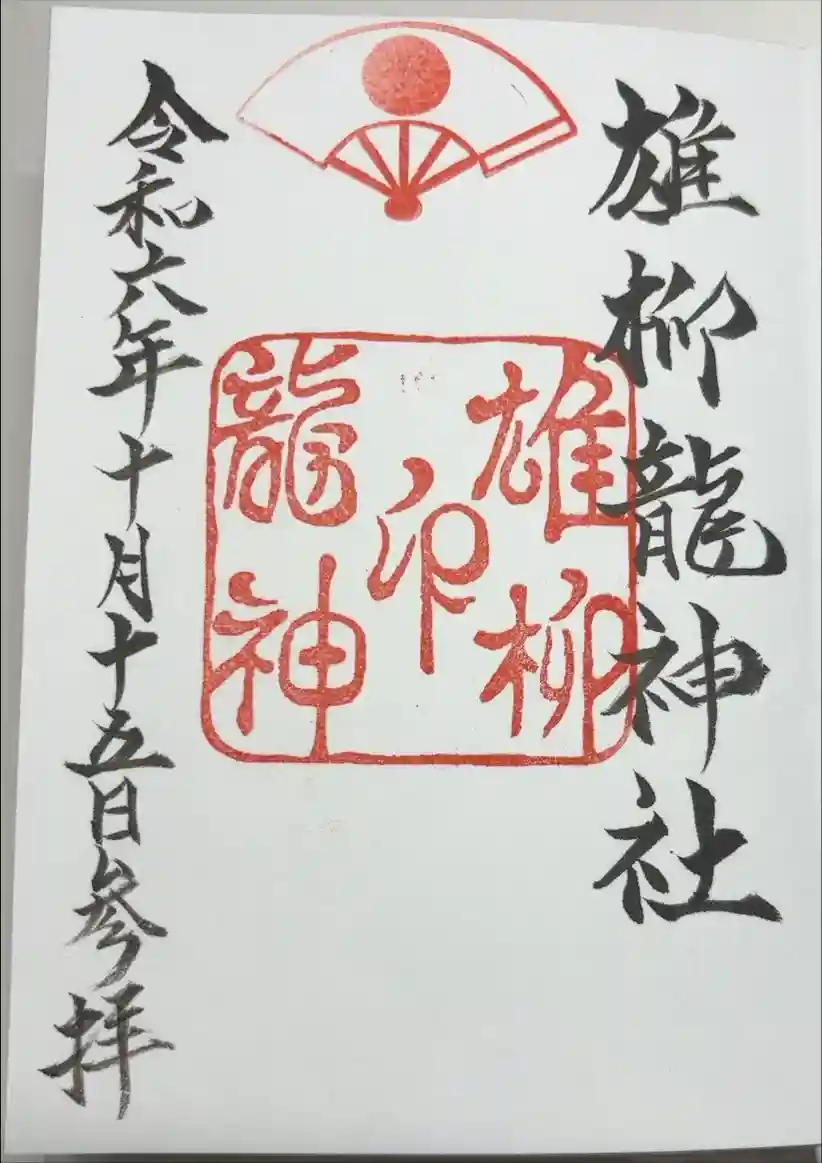 雄柳龍神社
雄柳
印
龍神
令和六年十月十五日参拝